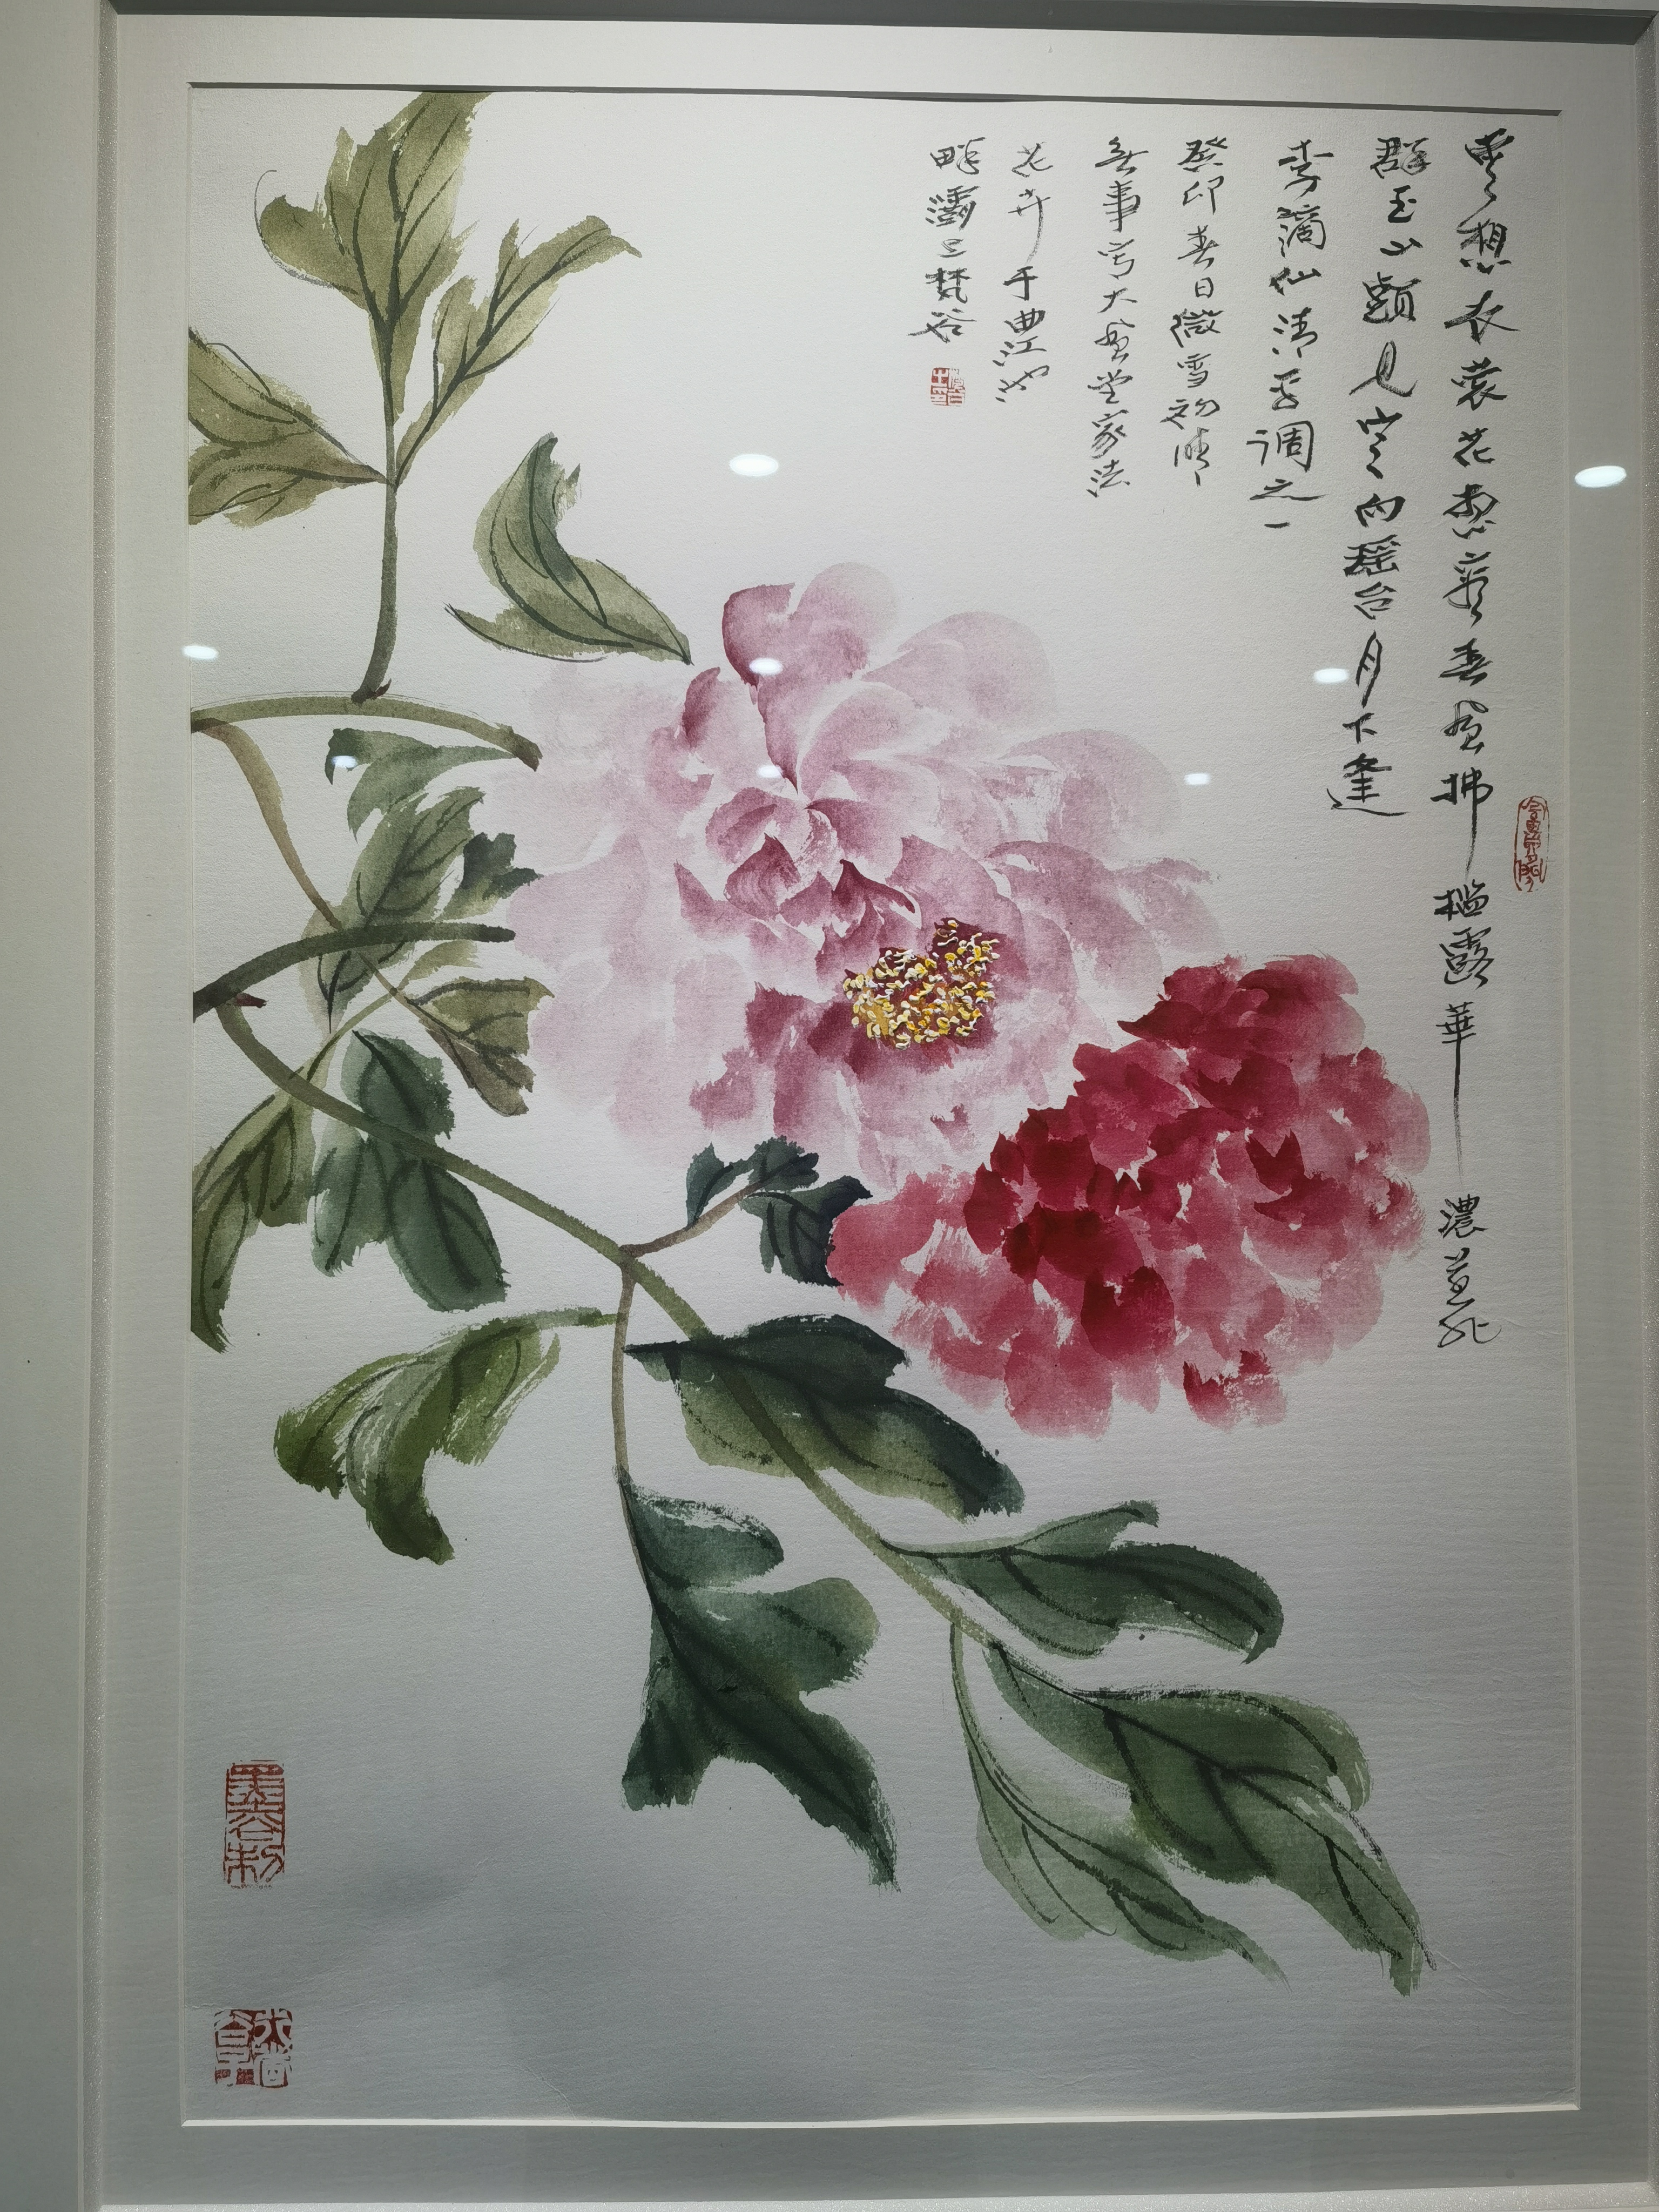 雲想衣裳花想容春風拂檻露華濃若非
群玉山頭見會向瑶台月下逢
李謫仙清平调之一
癸卯春日微雪初晴
無事写大風堂家法
花卉于曲江池
畔灞上梵谷